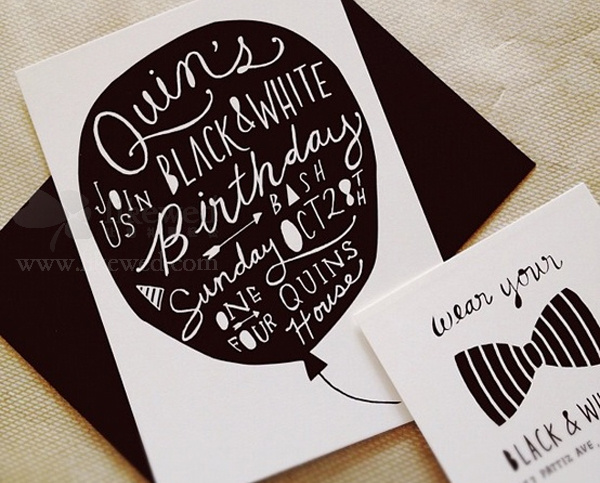 Quin's
BLACK & WHITE
JOIN US Birthday
BASH
Sunday OCT 28TH
ONE → FOUR QUINS House
wear your
BLACK & WHI
PATTIZ AVE
www.
wed.com